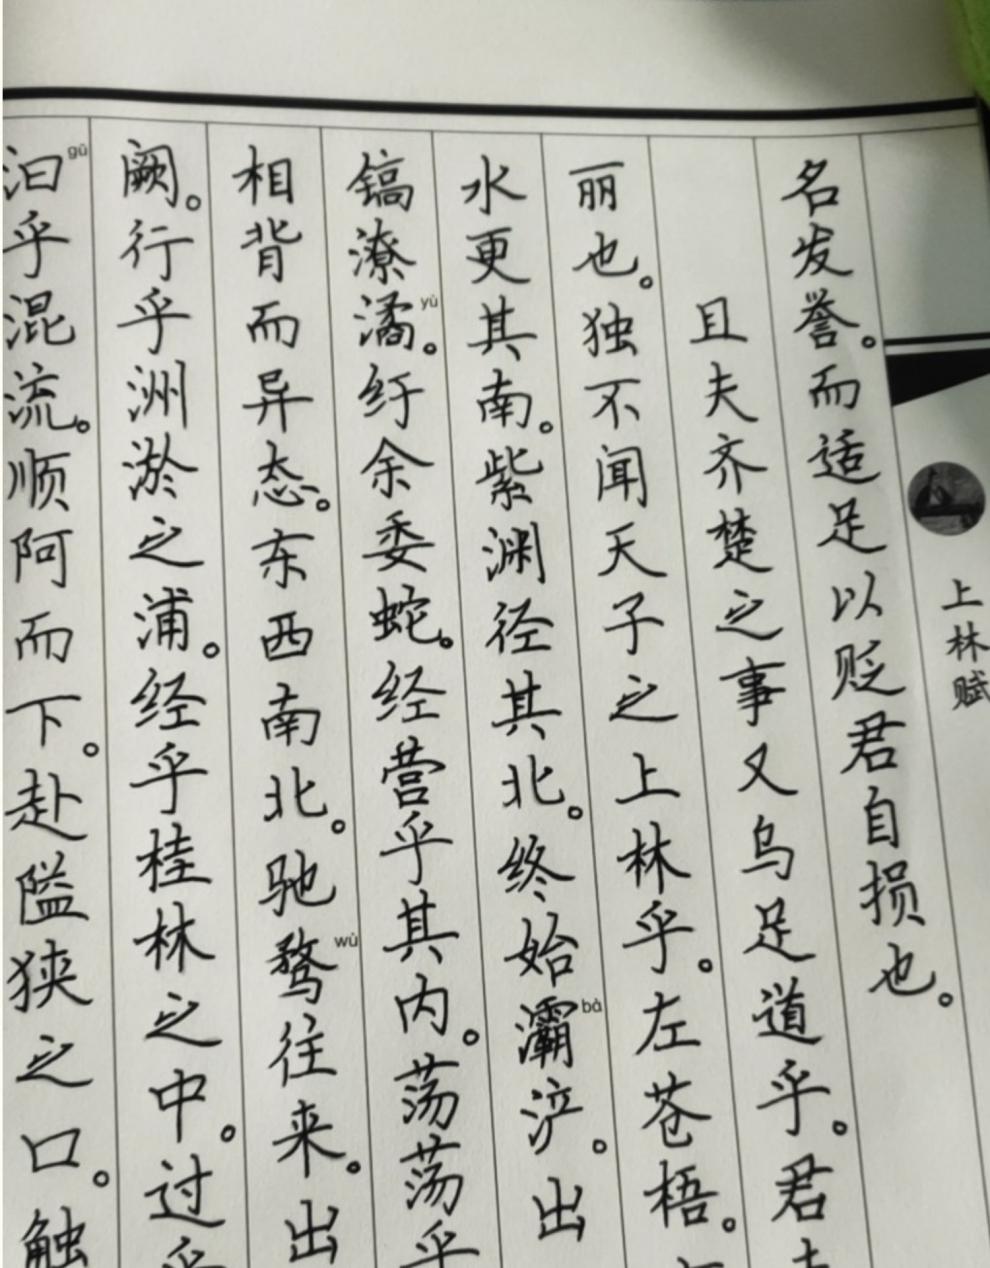 上林赋
名发誉。而适足以贬君自损也。
且夫齐楚之事又乌足道乎。君
丽也。独不闻天子之上林乎。左苍梧。
水更其南。紫渊径其北。终始灞bà浐。出
镐潦潏yù。纡余委蛇。经营乎其内。荡荡乎
相背而异态。东西南北。驰骛wù往来。出
阙。行乎洲淤之浦。经乎桂林之中。过乎
汩gǔ乎混流。顺阿而下。赴隘狭之口。触